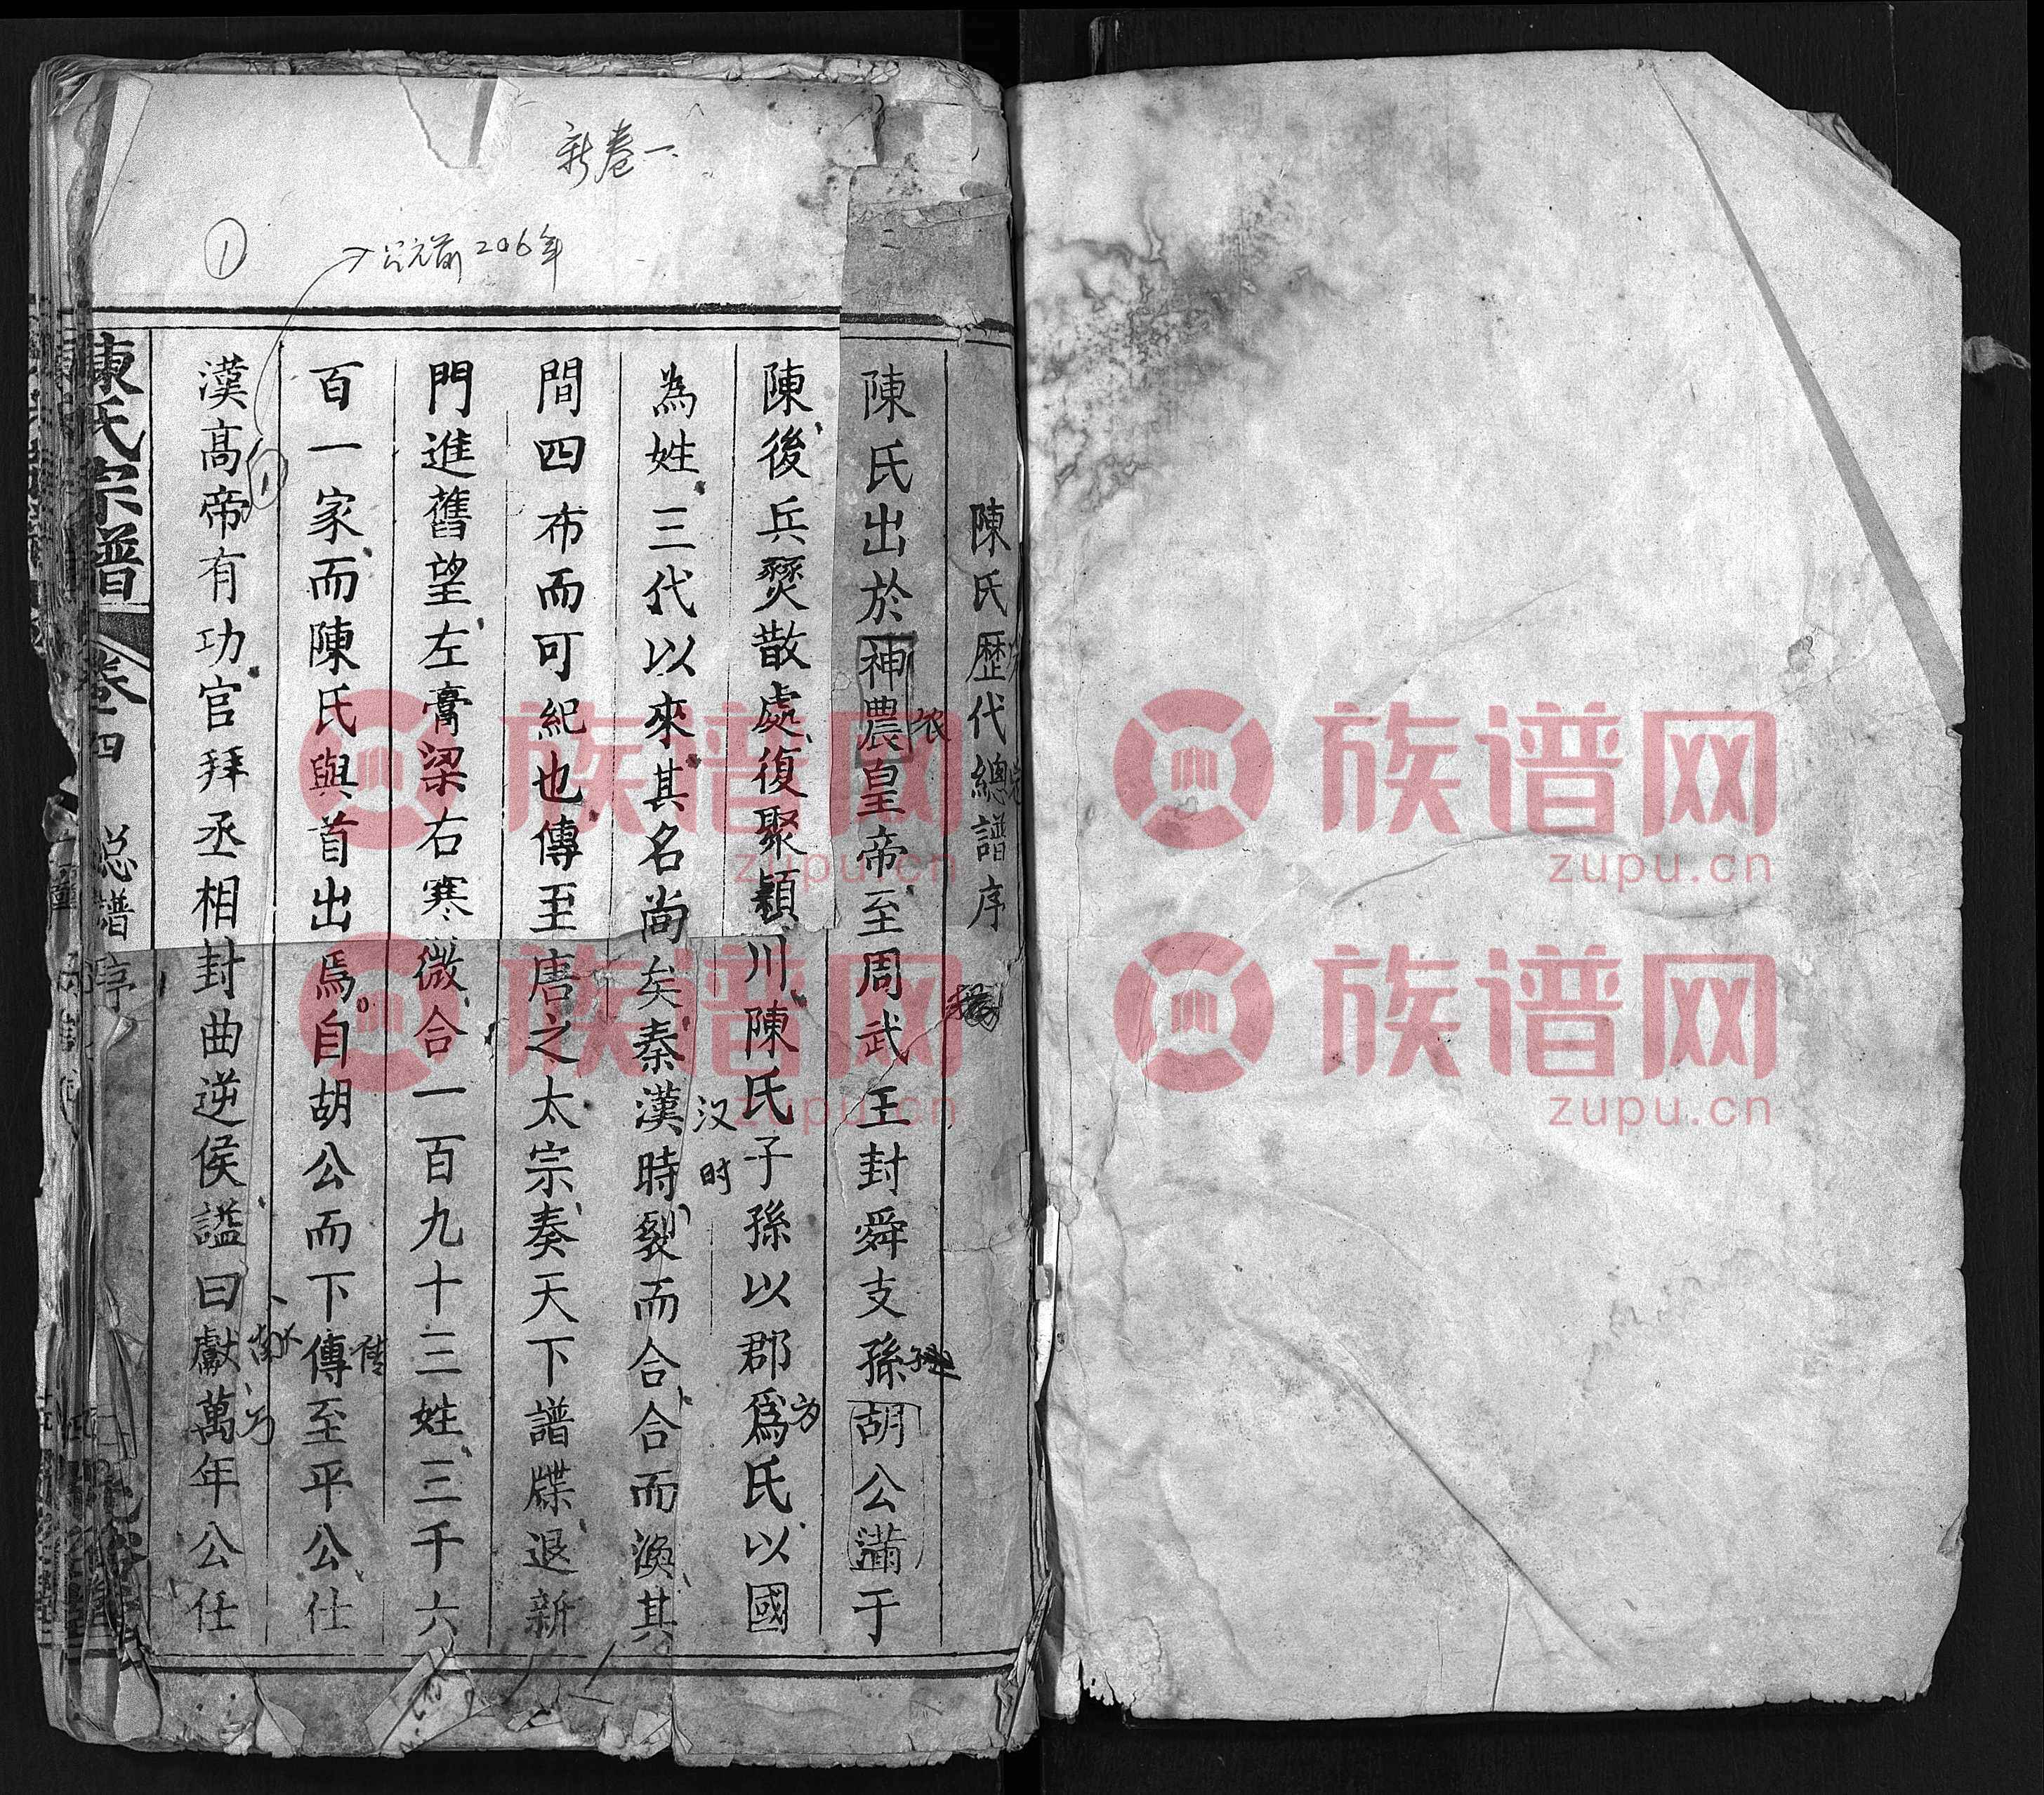 新卷一
①
公元前206年
陳氏歷代總譜序
陳氏出於神農皇帝至周武王封舜支孫胡公滿于
农
陳後兵燹散處復聚潁川陳氏子孫以郡爲氏以國
为
為姓三代以來其名尚矣秦漢時裂而合合而渙其
汉时
間四布而可紀也傳至唐之太宗奏天下譜牒退新
門進舊望左膏粱右寒微合一百九十三姓三千六
百一家而陳氏與首出焉自胡公而下傳至平公仕
傳
漢高帝有功官拜丞相封曲逆侯諡曰獻萬年公仕
①
献万
陳氏宗譜
卷四
总譜序
族谱网
zupu.cn
族谱网
zupu.cn
族谱网
zupu.cn
族谱网
zupu.cn